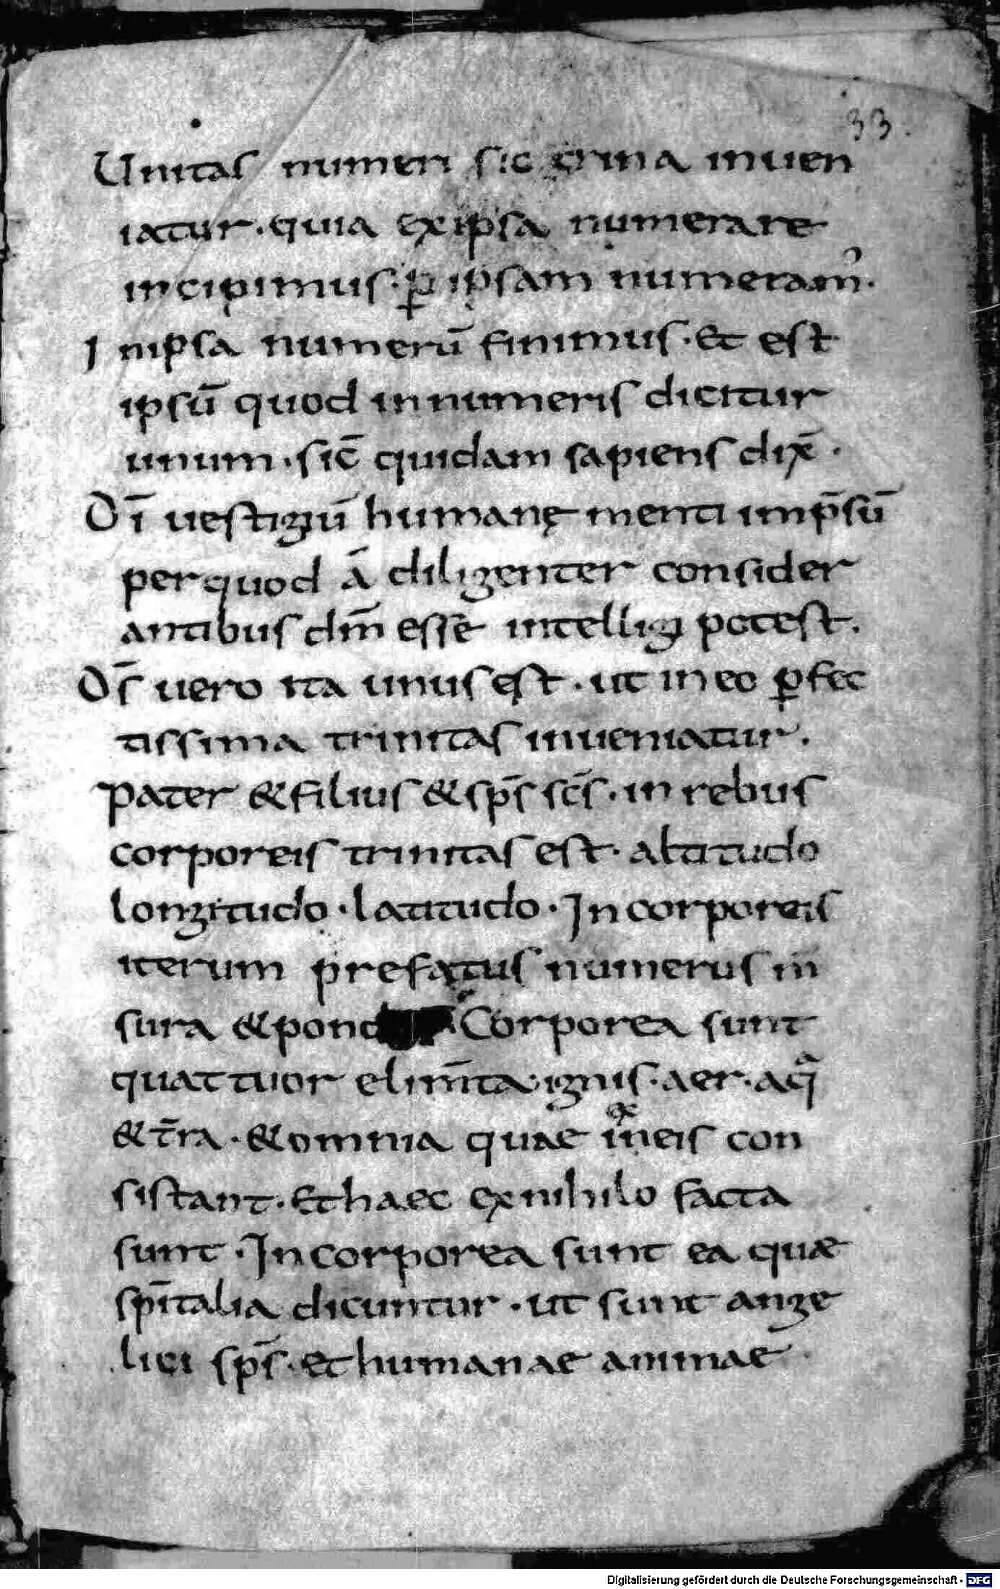 33.
Unitas numeri sic trina inuen
iatur · quia ex ipsa numerare
incipimus · p̄ ipsam numeram᾿.
In ipsa numerū finimus · Et est
ipsū quod in numeris dicitur
unum · sic̄ quidam sapiens dix̄ ·
Dī uestigiū humanę menti imp̄sū
per quod ā diligenter consider
antibus dm̄ esse intelligi potest.
Ds̄ uero ita unus est · ut in eo ꝑfec
tissima trinitas inueniatur.
Pater & filius & sp̄s sc̄s · in rebus
corporeis trinitas est · altitudo
longitudo · latitudo · Incorporeis
iterum prefatus numerus m̄
sura & pond Corporea sunt
quattuor elim̄ta · ignis · aer · aq̄a
& t̄ra · & omnia quae in eis con
sistant · Et haec ex nihilo facta
sunt · Incorporea sunt ea quæ
sp̄italia dicuntur · ut sunt ange
lici sp̄s · et humanae animae
Digitalisierung gefördert durch die Deutsche Forschungsgemeinschaft - DFG